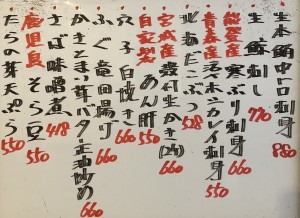 生本鮪中トロ刺身 880
生鯵刺し 770
能登産寒ぶり刺身 660
青森産ナメタカレイ刺身 550
北海だこぶつ 528
宮城産殻付生かき(2ヶ) 660
自家製あん肝 550
穴子白焼き 660
ふぐ竜田揚げ 660
たらの芽バター正油炒め 660
さば味噌煮 418
鹿児島そら豆 550
たらの芽天ぷら 550